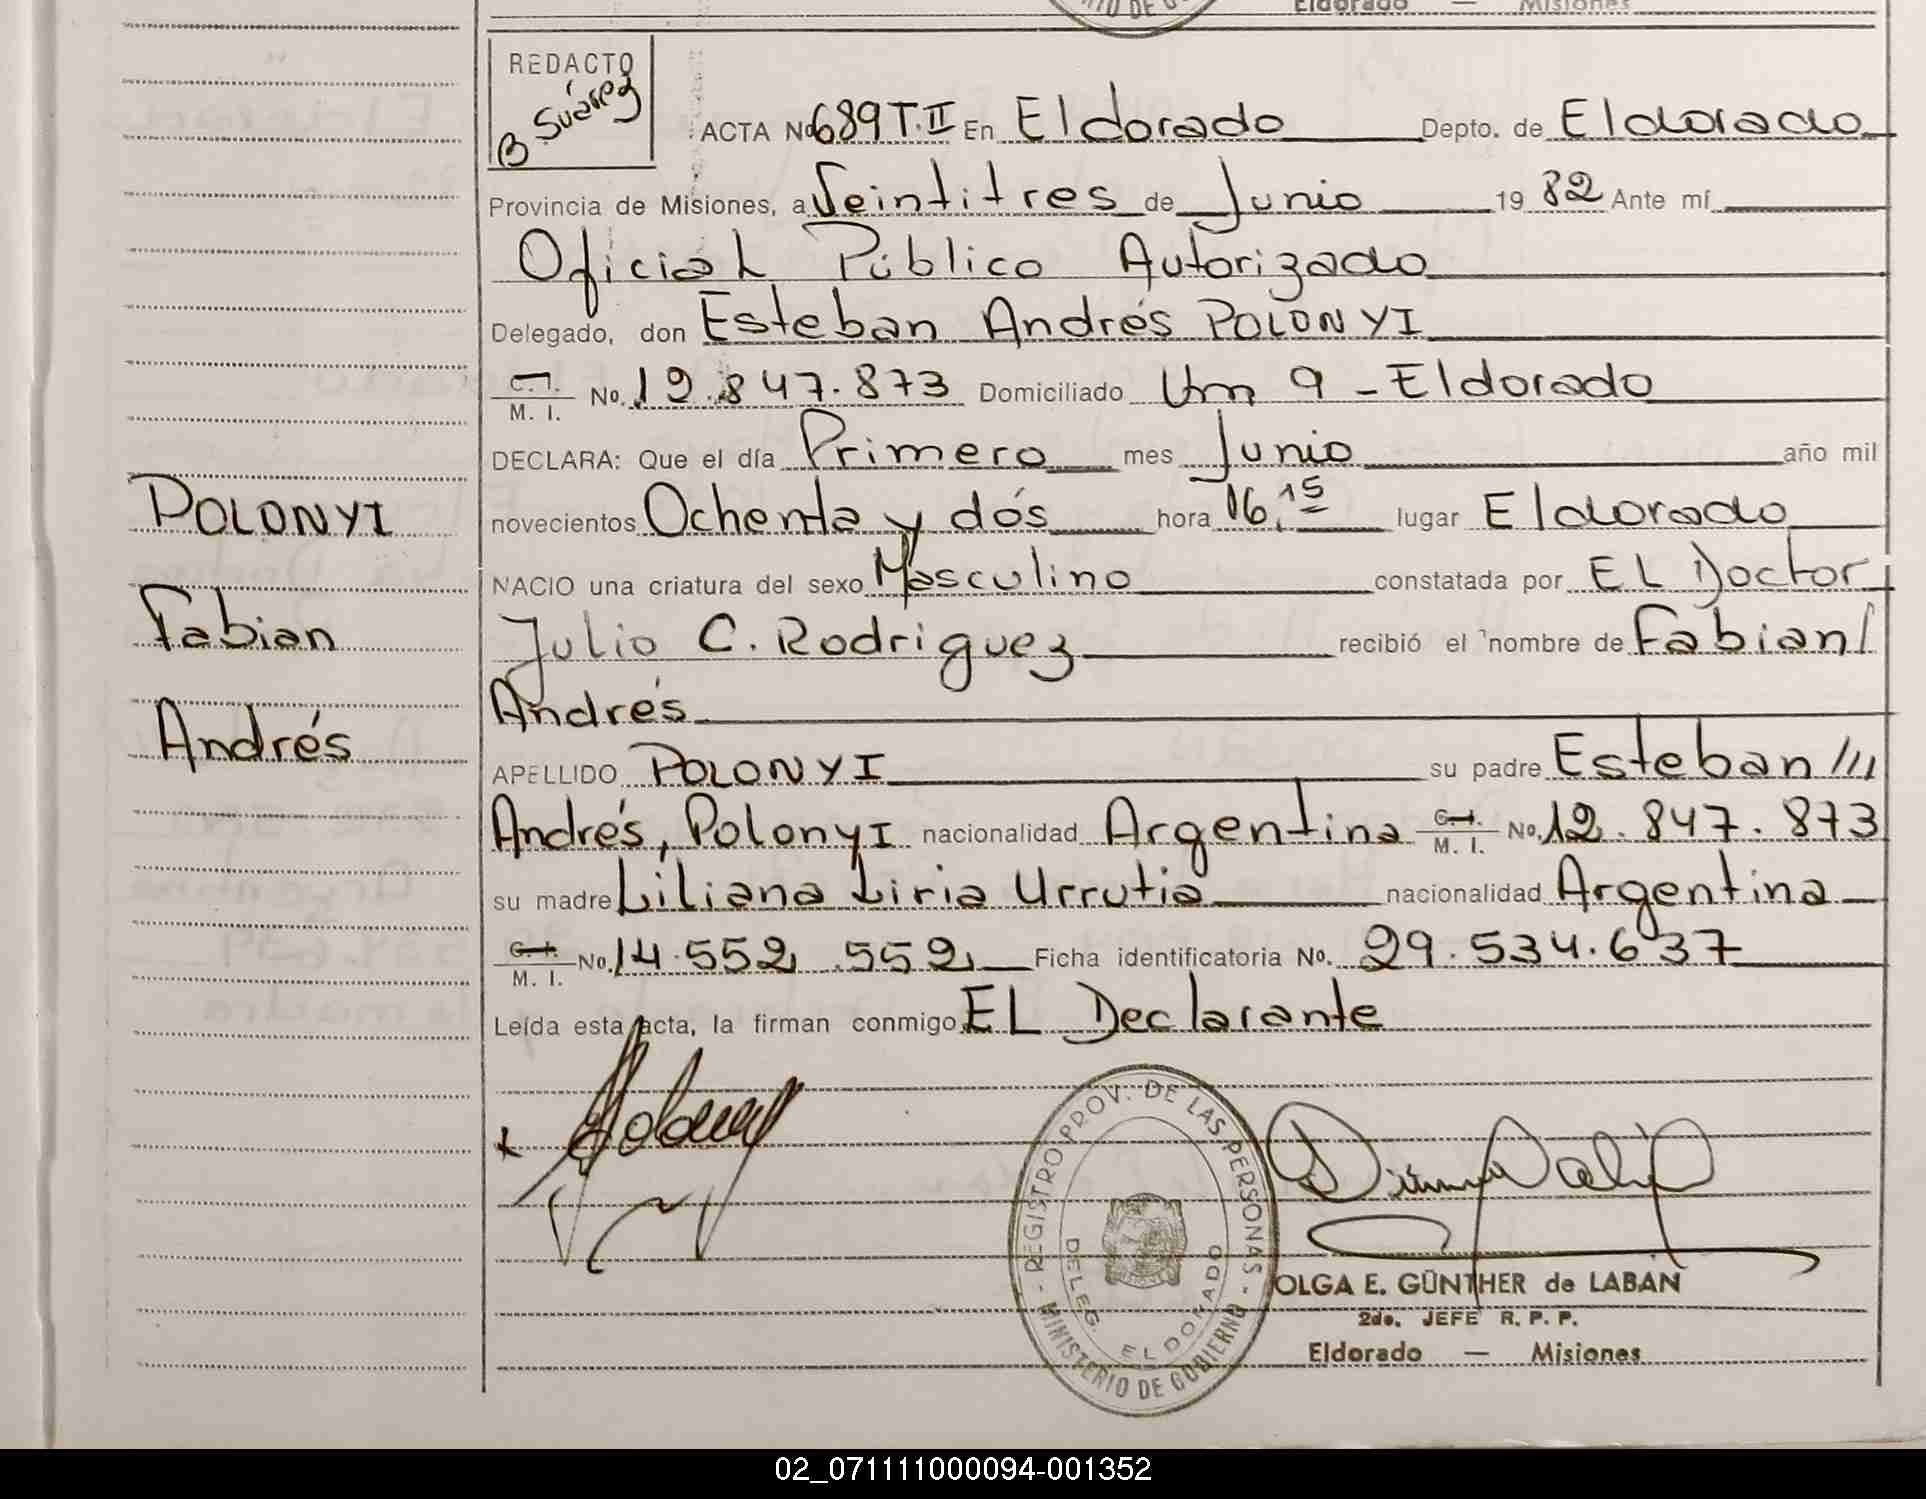 Eldorado — Misiones
REDACTO
B Suárez
ACTA No 689 T.II En Eldorado Depto. de Eldorado
Provincia de Misiones, a Veintitres de Junio 1982 Ante mí
Oficial Público Autorizado
Delegado, don Esteban Andrés POLONYI
C.I. M. I. No. 12.847.873 Domiciliado Km 9 - Eldorado
DECLARA: Que el día Primero mes Junio año mil
novecientos Ochenta y dós hora 16,15 lugar Eldorado
NACIO una criatura del sexo Masculino constatada por EL Doctor
Julio C. Rodriguez recibió el nombre de Fabian/
Andrés
APELLIDO POLONYI su padre Esteban ///
Andrés, Polonyi nacionalidad Argentina C.I. M. I. No. 12.847.873
su madre Liliana Liria Urrutia nacionalidad Argentina
C.I. M. I. No. 14.552.552 Ficha identificatoria No. 29.534.637
Leída esta acta, la firman conmigo EL Declarante
POLONYI
Fabian
Andrés
- REGISTRO PROV. DE LAS PERSONAS -
MINISTERIO DE GOBIERNO
DELEG. ELDORADO
OLGA E. GÜNTHER de LABAN
2do. JEFE R. P. P.
Eldorado — Misiones
02_071111000094-001352